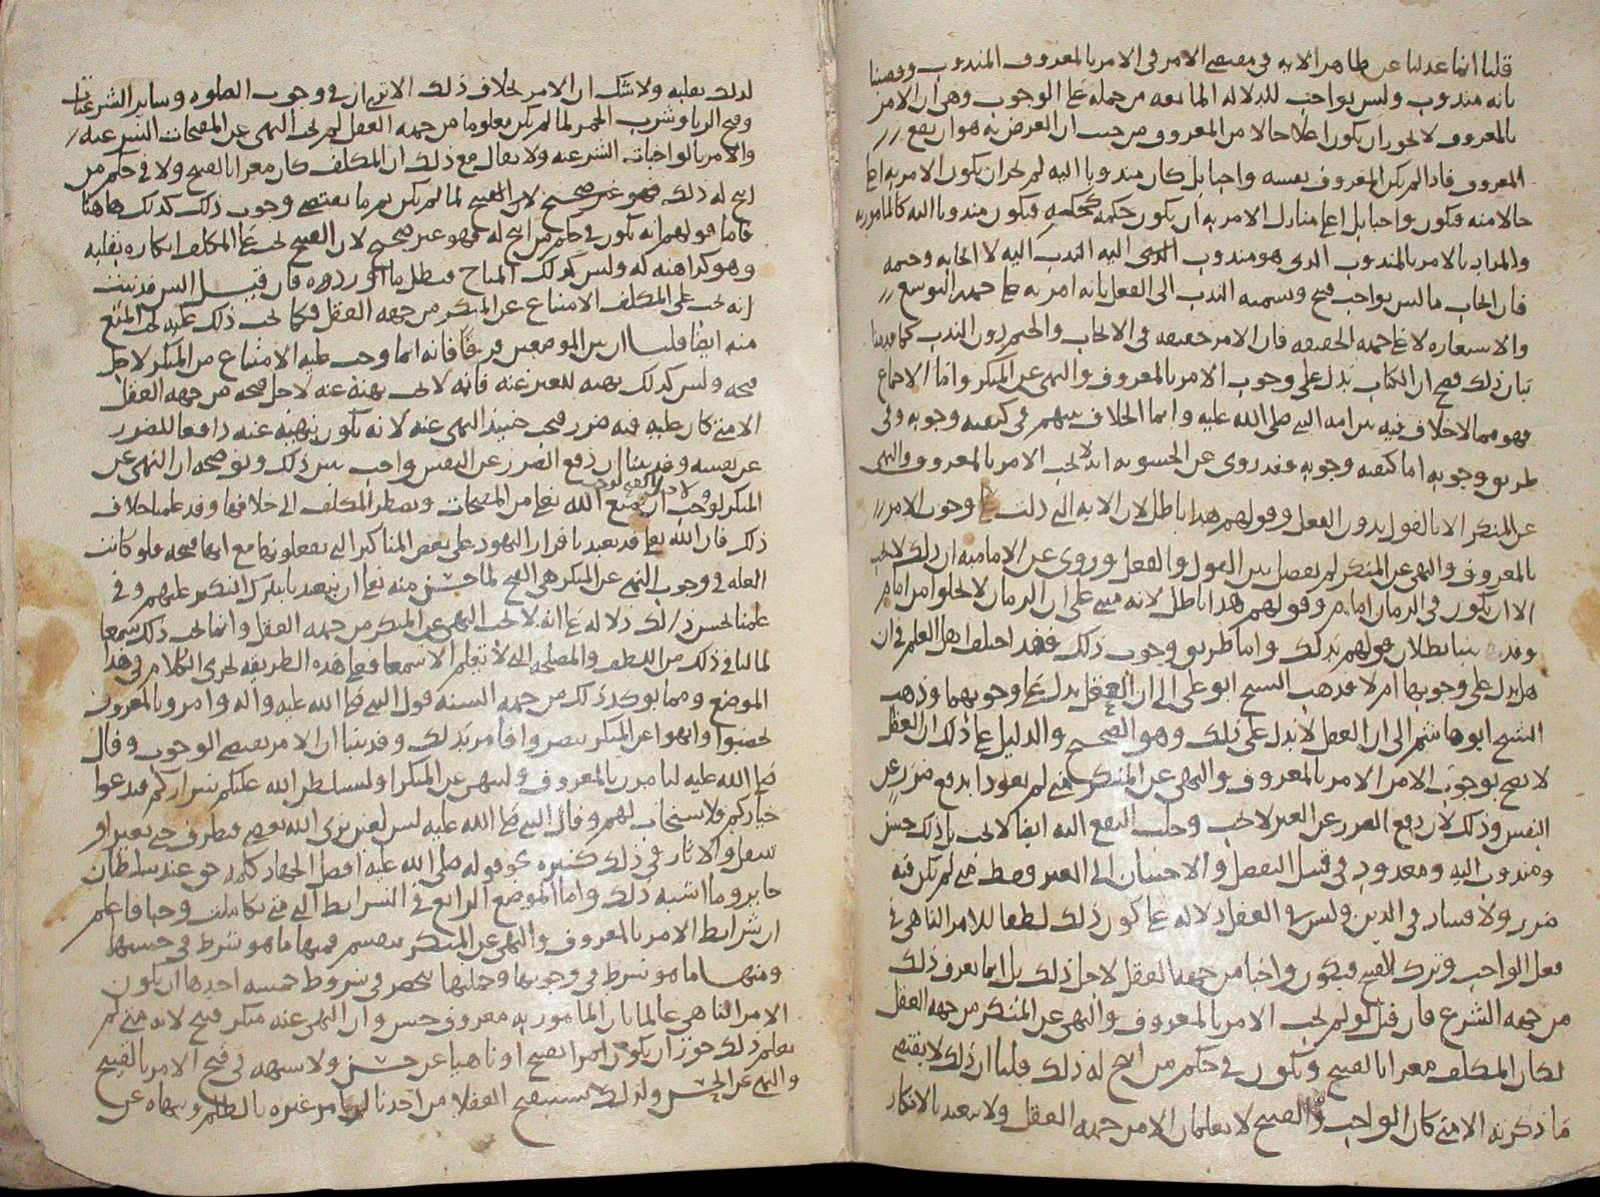 قلنا انما عدلنا عن ظاهر الايه في مقتضى الامر في الامر بالمعروف المندوب وقضينا
بانه مندوب وليس بواجب للدلاله المانعه من حمله على الوجوب وهي ان الامر
بالمعروف لا يجوز ان يكون اعلا حالا من المعروف من حيث ان الغرض به هو ان يقع
المعروف فاذا لم يكن المعروف بنفسه واجبا بل كان مندوبا اليه لم يجز ان يكون الامر به اعلى
حالا منه فيكون واجبا بل اعلى منازل الامر به ان يكون حكمه كحكمه فيكون مندوبا اليه كالمأمور به
والمراد بالامر بالمندوب الذي هو مندوب اليه الندب اليه لا ايجابه وحتمه
فان ايجاب ما ليس بواجب قبيح وتسميه الندب الى الفعل بانه امر به على جهه التوسع
والاستعاره لا على جهه الحقيقه فان الامر حقيقه في الايجاب والحتم دون الندب كما قدمنا
بيان ذلك فصح ان الكتاب يدل على وجوب الامر بالمعروف والنهي عن المنكر واما الاجماع
فهو مما لا خلاف فيه بين امه النبي صلى الله عليه وانما الخلاف بينهم في كيفيه وجوبه وفي
طريق وجوبه اما كيفيه وجوبه فقد روي عن الحشويه انه لا يجب الامر بالمعروف والنهي
عن المنكر الا بالقول دون الفعل وقولهم هذا باطل لان الايه التي دلت على وجوب الامر
بالمعروف والنهي عن المنكر لم تفصل بين القول والفعل وروي عن الاماميه ان ذلك لا يجب
الا ان يكون في الزمان امام وقولهم هذا باطل لانه مبني على ان الزمان لا يخلوا من امام
وقد بينا بطلان قولهم بذلك واما طريق وجوب ذلك فقد اختلف اهل العلم في ان
هل يدل على وجوبها ام لا فذهب الشيخ ابو علي الى ان العقل يدل على وجوبهما وذهب
الشيخ ابو هاشم الى ان العقل لا يدل على ذلك وهو الصحيح والدليل على ذلك ان العقل
لا يقضي بوجوب الامر بالمعروف والنهي عن المنكر متى لم يعودا بدفع ضرر عن
النفس وذلك لان دفع الضرر عن الغير لا يجب وجلب النفع اليه ايضا لا يجب بل ذلك حسن
ومندوب اليه ومعدود في قبيل التفضل والاحسان الى الغير فقط متى لم يكن فيه
ضرر ولا فساد في الدين وليس في العقل دلاله على كون ذلك لطفا للامر الناهي في
فعل الواجب وترك القبيح فيكون واجبا من جهه العقل لاجل ذلك بل انما يعرف ذلك
من جهه الشرع فان قيل لو لم يجب الامر بالمعروف والنهي عن المنكر من جهه العقل
لكان المكلف مغرا بالقبيح ويكون في حكم من ابيح له ذلك قلنا ان ذلك لا يقتضي
ما ذكرته الا متى كان الواجب والقبيح لا يعلمان الا من جهه العقل ولا يعبد بالانكار
لذلك بقلبه ولا شك ان الامر بخلاف ذلك الا ترى ان في وجوب الصلوه وساير الشرعيات
وقبح الربا وشرب الخمر لما لم يكن معلوما من جهه العقل لم يجب النهي عن المقبحات الشرعيه
والامر بالواجبات الشرعيه ولا يقال مع ذلك ان المكلف كان مغرا بالقبيح ولا في حكم من
ابيح له ذلك فهو غير صحيح لان القبيح لما لم يكن ثم ما يقتضي وجوب ذلك كذلك هاهنا
فاما قولهم انه يكون في حكم من ابيح له فهو غير صحيح لان القبيح يجب على المكلف انكاره بقلبه
وهو كراهته له وليس كذلك المباح فبطل ما اوردوه فان قيل اليس قد ثبت
انه يجب على المكلف الامتناع عن المنكر من جهه العقل فكما يجب ذلك عليه يجب المنع
منه ايضا قلنا ان بين الموضعين فرقا فانه انما وجب عليه الامتناع من المنكر لاجل
قبحه وليس كذلك نهيه للغير عنه فانه لا يجب نهيه عنه لاجل قبحه من جهه العقل
الا متى كان عليه فيه ضرر فيجب حينئذ النهي عنه لانه يكون بنهيه عنه دافعا للضرر
عن نفسه وقد بينا ان دفع الضرر عن النفس واجب يبين ذلك ويوضحه ان النهي عن
المنكر لوجب ان يمنع الله تعالى من المقبحات ويضطر المكلف الى خلافها وقد علمنا خلاف
ذلك فان الله تعالى قد تعبد باقرار اليهود على بعض المناكير التي يفعلونها مع انها قبيحه فلو كانت
العله في وجوب النهي عن المنكر هي القبح لما حسن منه تعالى ان يتعبدنا بترك النكير عليهم وفي
علمنا بحسن ذلك دلاله على انه لا يجب النهي عن المنكر من جهه العقل وانما يجب ذلك سمعا
لما لنا في ذلك من اللطف والمصلحه التي لا تعلم الا سمعا فعلى هذه الطريقه يجري الكلام في هذا
الموضع ومما يؤكد ذلك من جهه السنه قول النبي صلى الله عليه واله وامروا بالمعروف
تخصبوا وانهوا عن المنكر تنصروا فأمر بذلك وقد بينا ان الامر يقتضي الوجوب وقال
صلى الله عليه لتأمرن بالمعروف ولتنهن عن المنكر او ليسلطن الله عليكم شراركم فيدعوا
خياركم فلا يستجاب لهم وقال النبي صلى الله عليه ليس لعين ترى الله يعصى فتطرف حتى تغير او
تنتقل والاثار في ذلك كثيره نحو قوله صلى الله عليه افضل الجهاد كلمه حق عند سلطان
جاير وما اشبه ذلك واما الموضع الرابع في الشرايط التي متى تكاملت وجبا فاعلم
ان شرايط الامر بالمعروف والنهي عن المنكر تنقسم فمنها ما هو شرط في حسنها
ومنها ما هو شرط في وجوبها وجملتها تنحصر في شروط خمسه احدها ان يكون
الامر الناهي عالما بان المأمور به معروف حسن وان المنهي عنه منكر قبيح لانه متى لم
يعلم ذلك جوز ان يكون امرا بقبيح او ناهيا عن حسن ولا شبهه في قبح الامر بالقبيح
والنهي عن الحسن ولذلك يستقبح العقلا من احدنا ان يأمر غيره بالظلم وينهاه عن